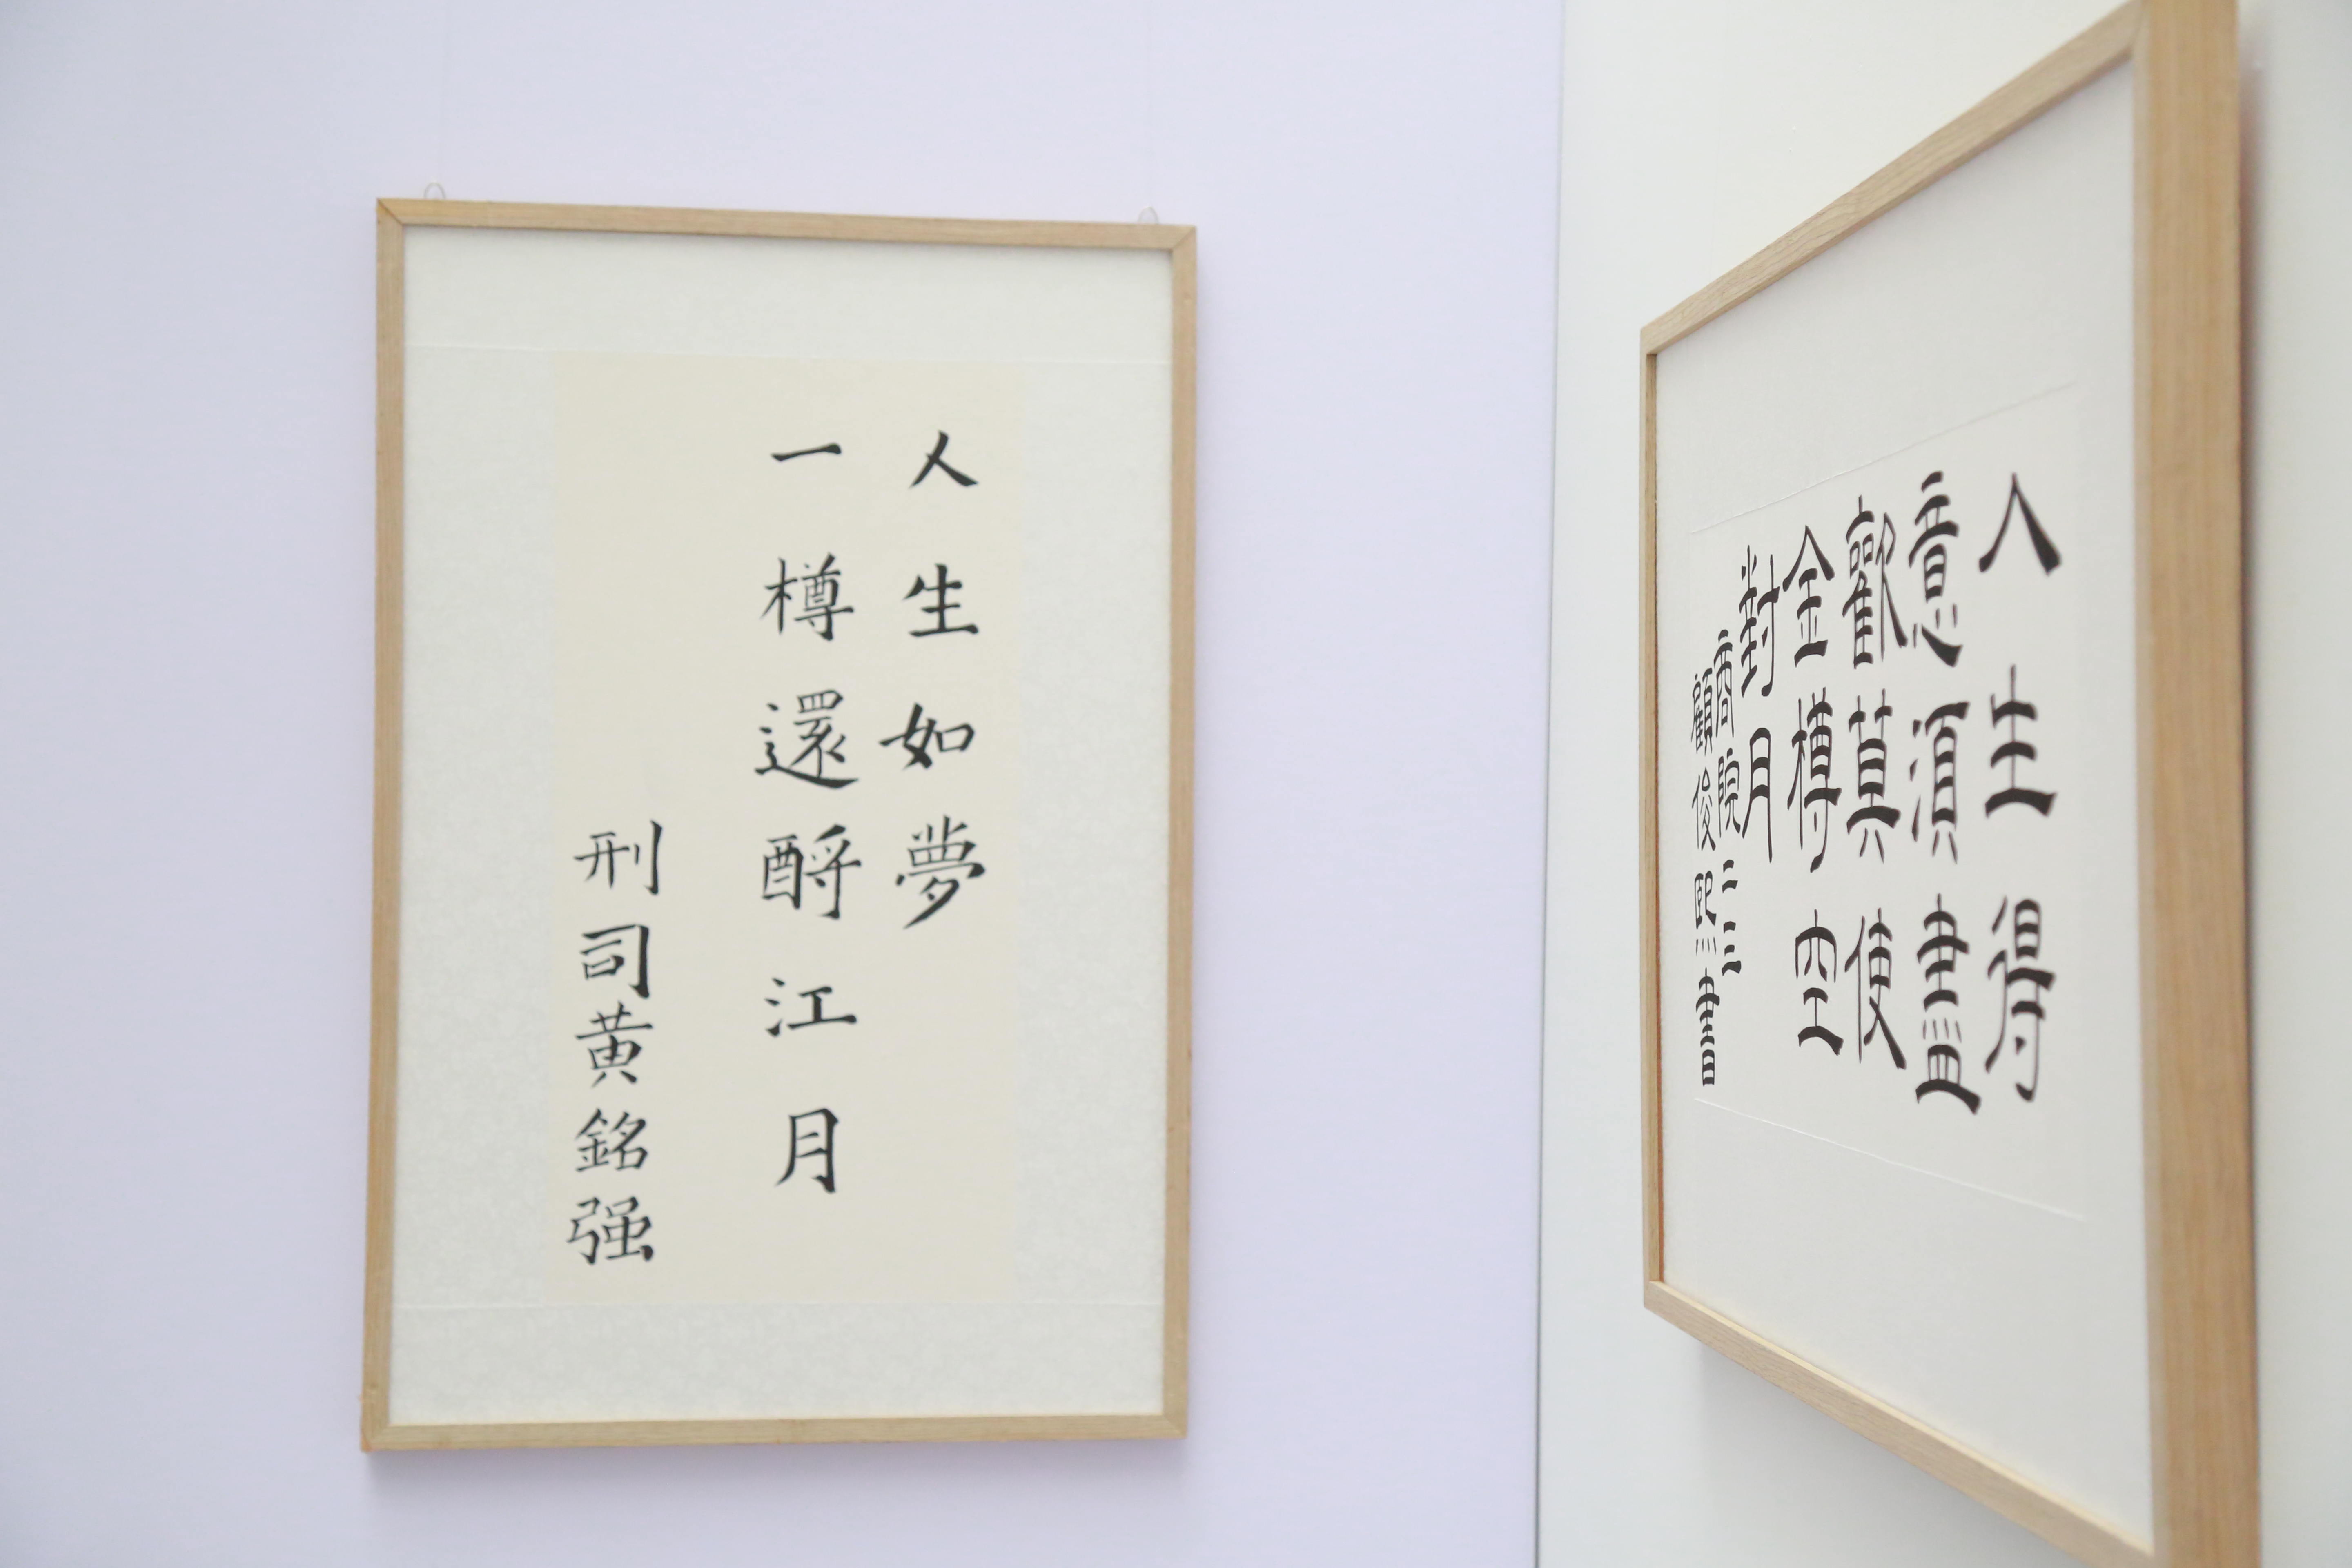 人生如夢
一樽還酹江月
刑司黄銘强
人生得
意須盡
歡莫使
金樽空
對月
商院二三
顧俊熙書